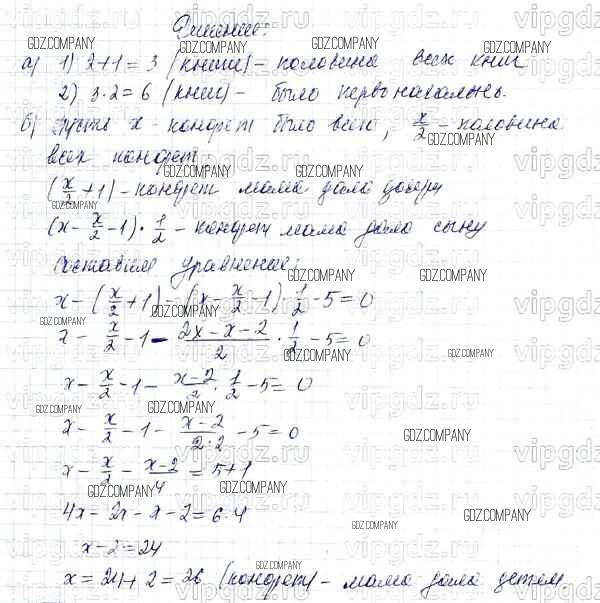 Решение:
а) 1) 2+1=3 (книги) – половина всех книг
2) 3·2=6 (книг) – было первоначально.
б) Пусть x – конфет было всего, x/2 – половина
всех конфет
(x/2+1) – конфет мама дала дочери
(x - x/2 - 1)·1/2 – конфет мама дала сыну
Составим уравнение:
x - (x/2+1) - (x - x/2 - 1) 1/2 - 5 = 0
x - x/2 - 1 - (2x-x-2)/2 · 1/2 - 5 = 0
x - x/2 - 1 - (x-2)/2 · 1/2 - 5 = 0
x - x/2 - 1 - (x-2)/(2·2) - 5 = 0
x - x/2 - (x-2)/4 = 5+1
4x - 2x - x - 2 = 6·4
x - 2 = 24
x = 24 + 2 = 26 (конфет) – мама дала детям